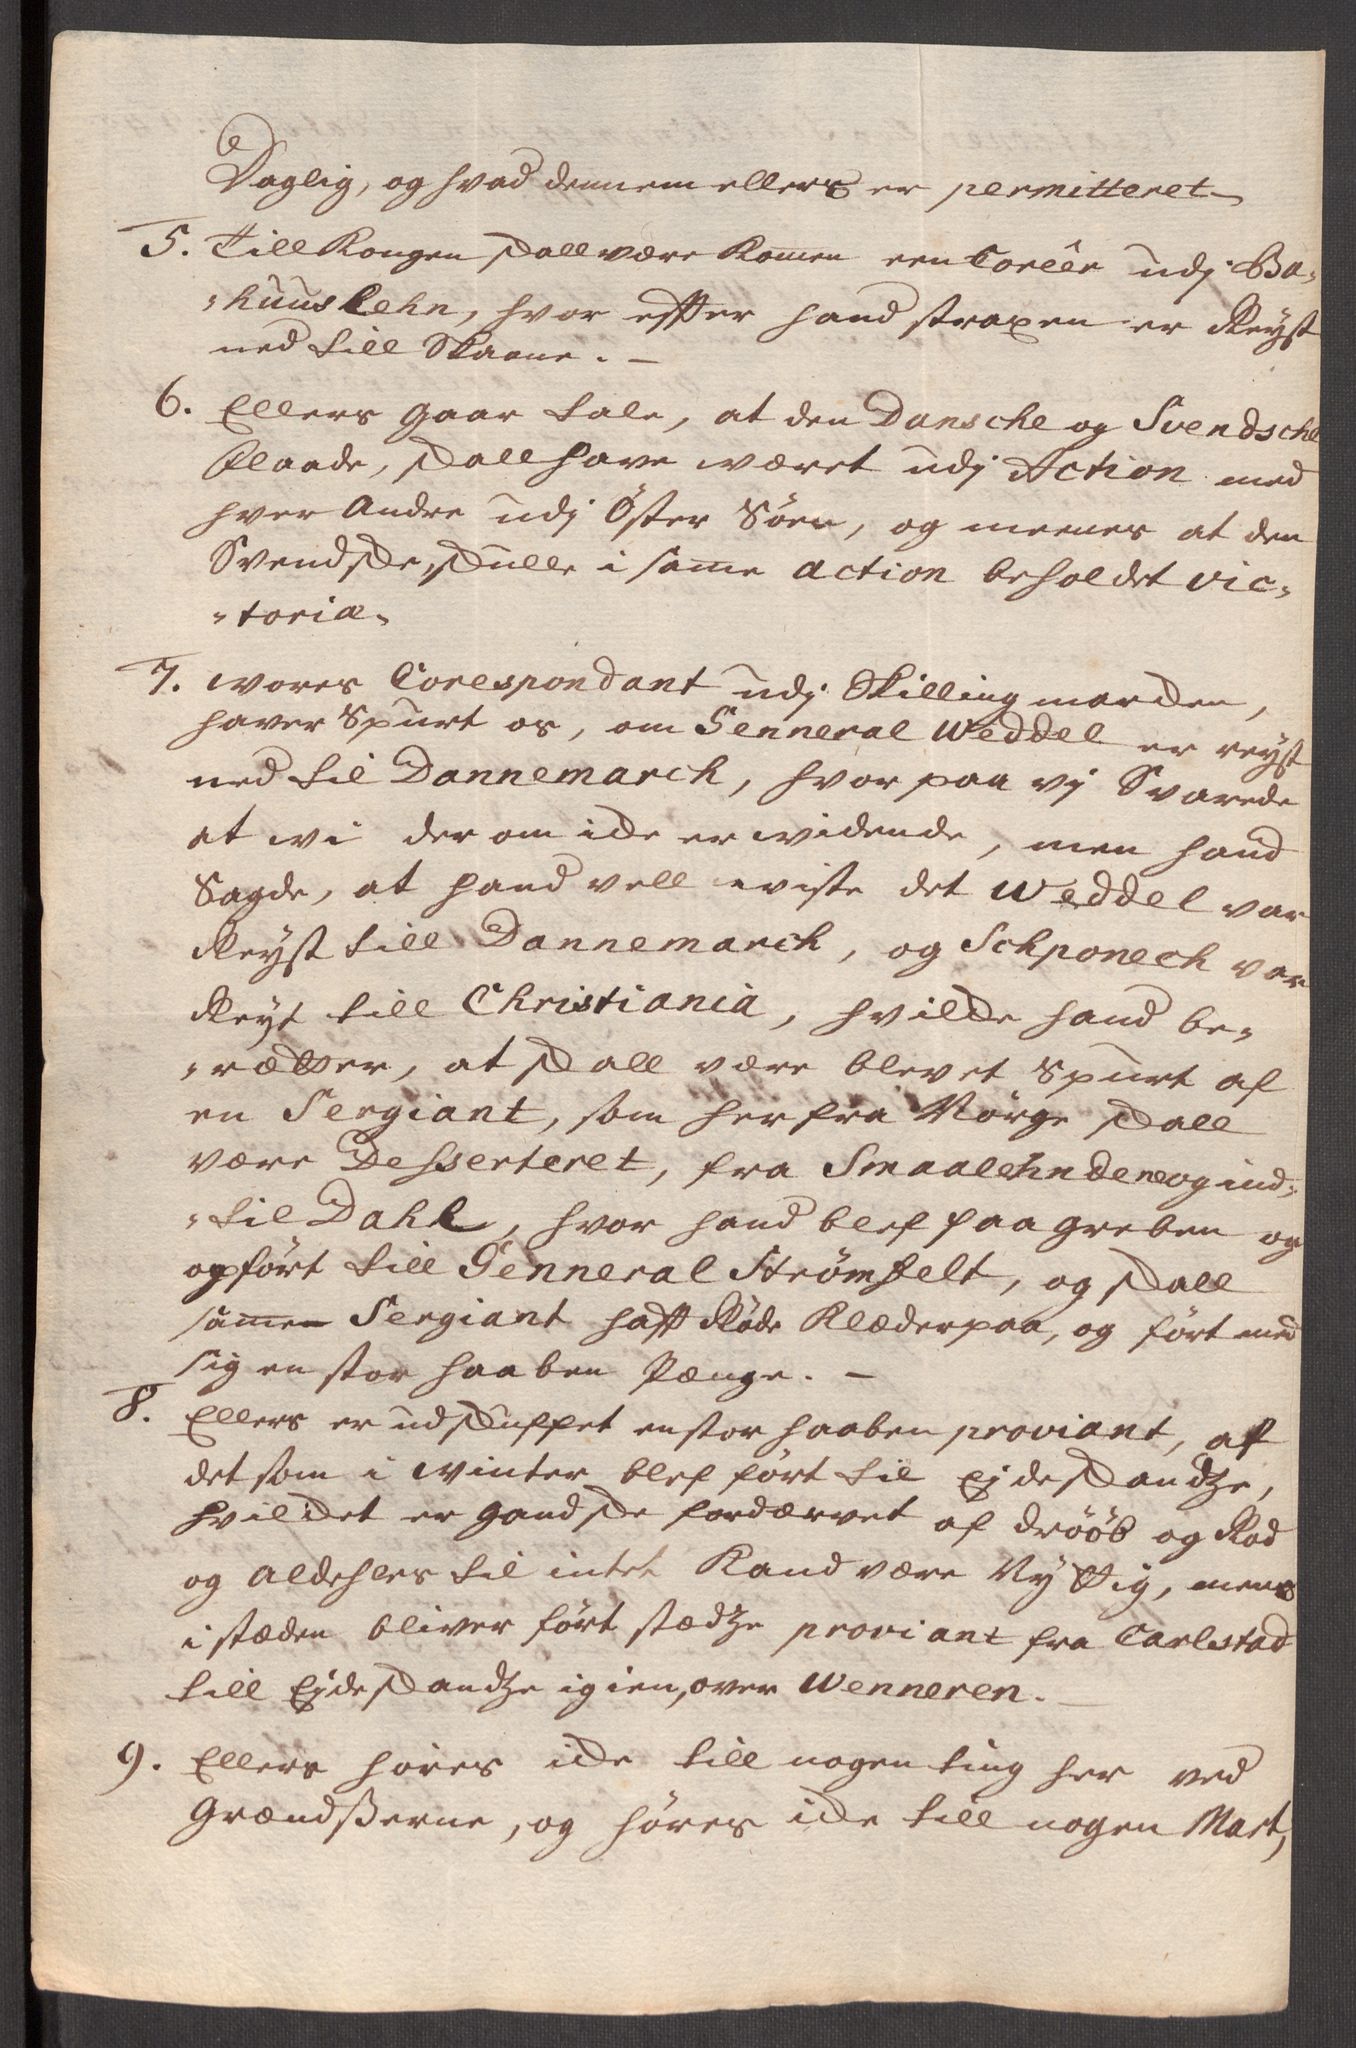 Daglig, og hvad dennem ellers er permitteret
5. Till Kongen skall være Kommen een Coreêr udj Ba-
-huus Lehn, hvor effter hand straxen er Reyst
ned till Skaane. —
6. Ellers gaar tale, at den Dansche og Svendsche
Flaade, skall have været udj Action med
hver Andre udj Öster Söen, og meenes at den
Svendske, skulle i samme action beholdet vic-
-toria.
7. wores Corespondant udj Skillingmarcken,
haver Spurt os, om Genneral Weddel er reyst
ned til Dannemarch, hvor paa vj Svarede
at wi der om icke er widende, men hand
Sagde, at hand vell wiste det Weddel var
Reyst till Dannemarch, og Schponech var
Reyst till Christiania, hvilcke hand be-
-rætter, at skall være blevet Spurt af
en Sergiant, som her fra Norge skall
være Dehsserteret, fra Smaalehndene og ind-
-til Dahl, hvor hand blef paa greben og
opfört till Genneral Strömfelt, og skall
samme Sergiant hafft Röde Klæder paa, og fört med
sig en stor haaben Pænge. —
8. Ellers er udskuffet en stor haaben proviant, af
det som i winter blef fört til Ejdeskandze,
hvilcket er gandske fordærvet af dröób og Rod
og aldehles til intet Kand være Nyttig, mens
i stæden bliver fört stædze proviant fra Carlstad
till Ejdeskandze igien, over Wenneren. —
9. Ellers höres icke till nogen ting her ved
Grændsserne, og höres icke till nogen Mart,